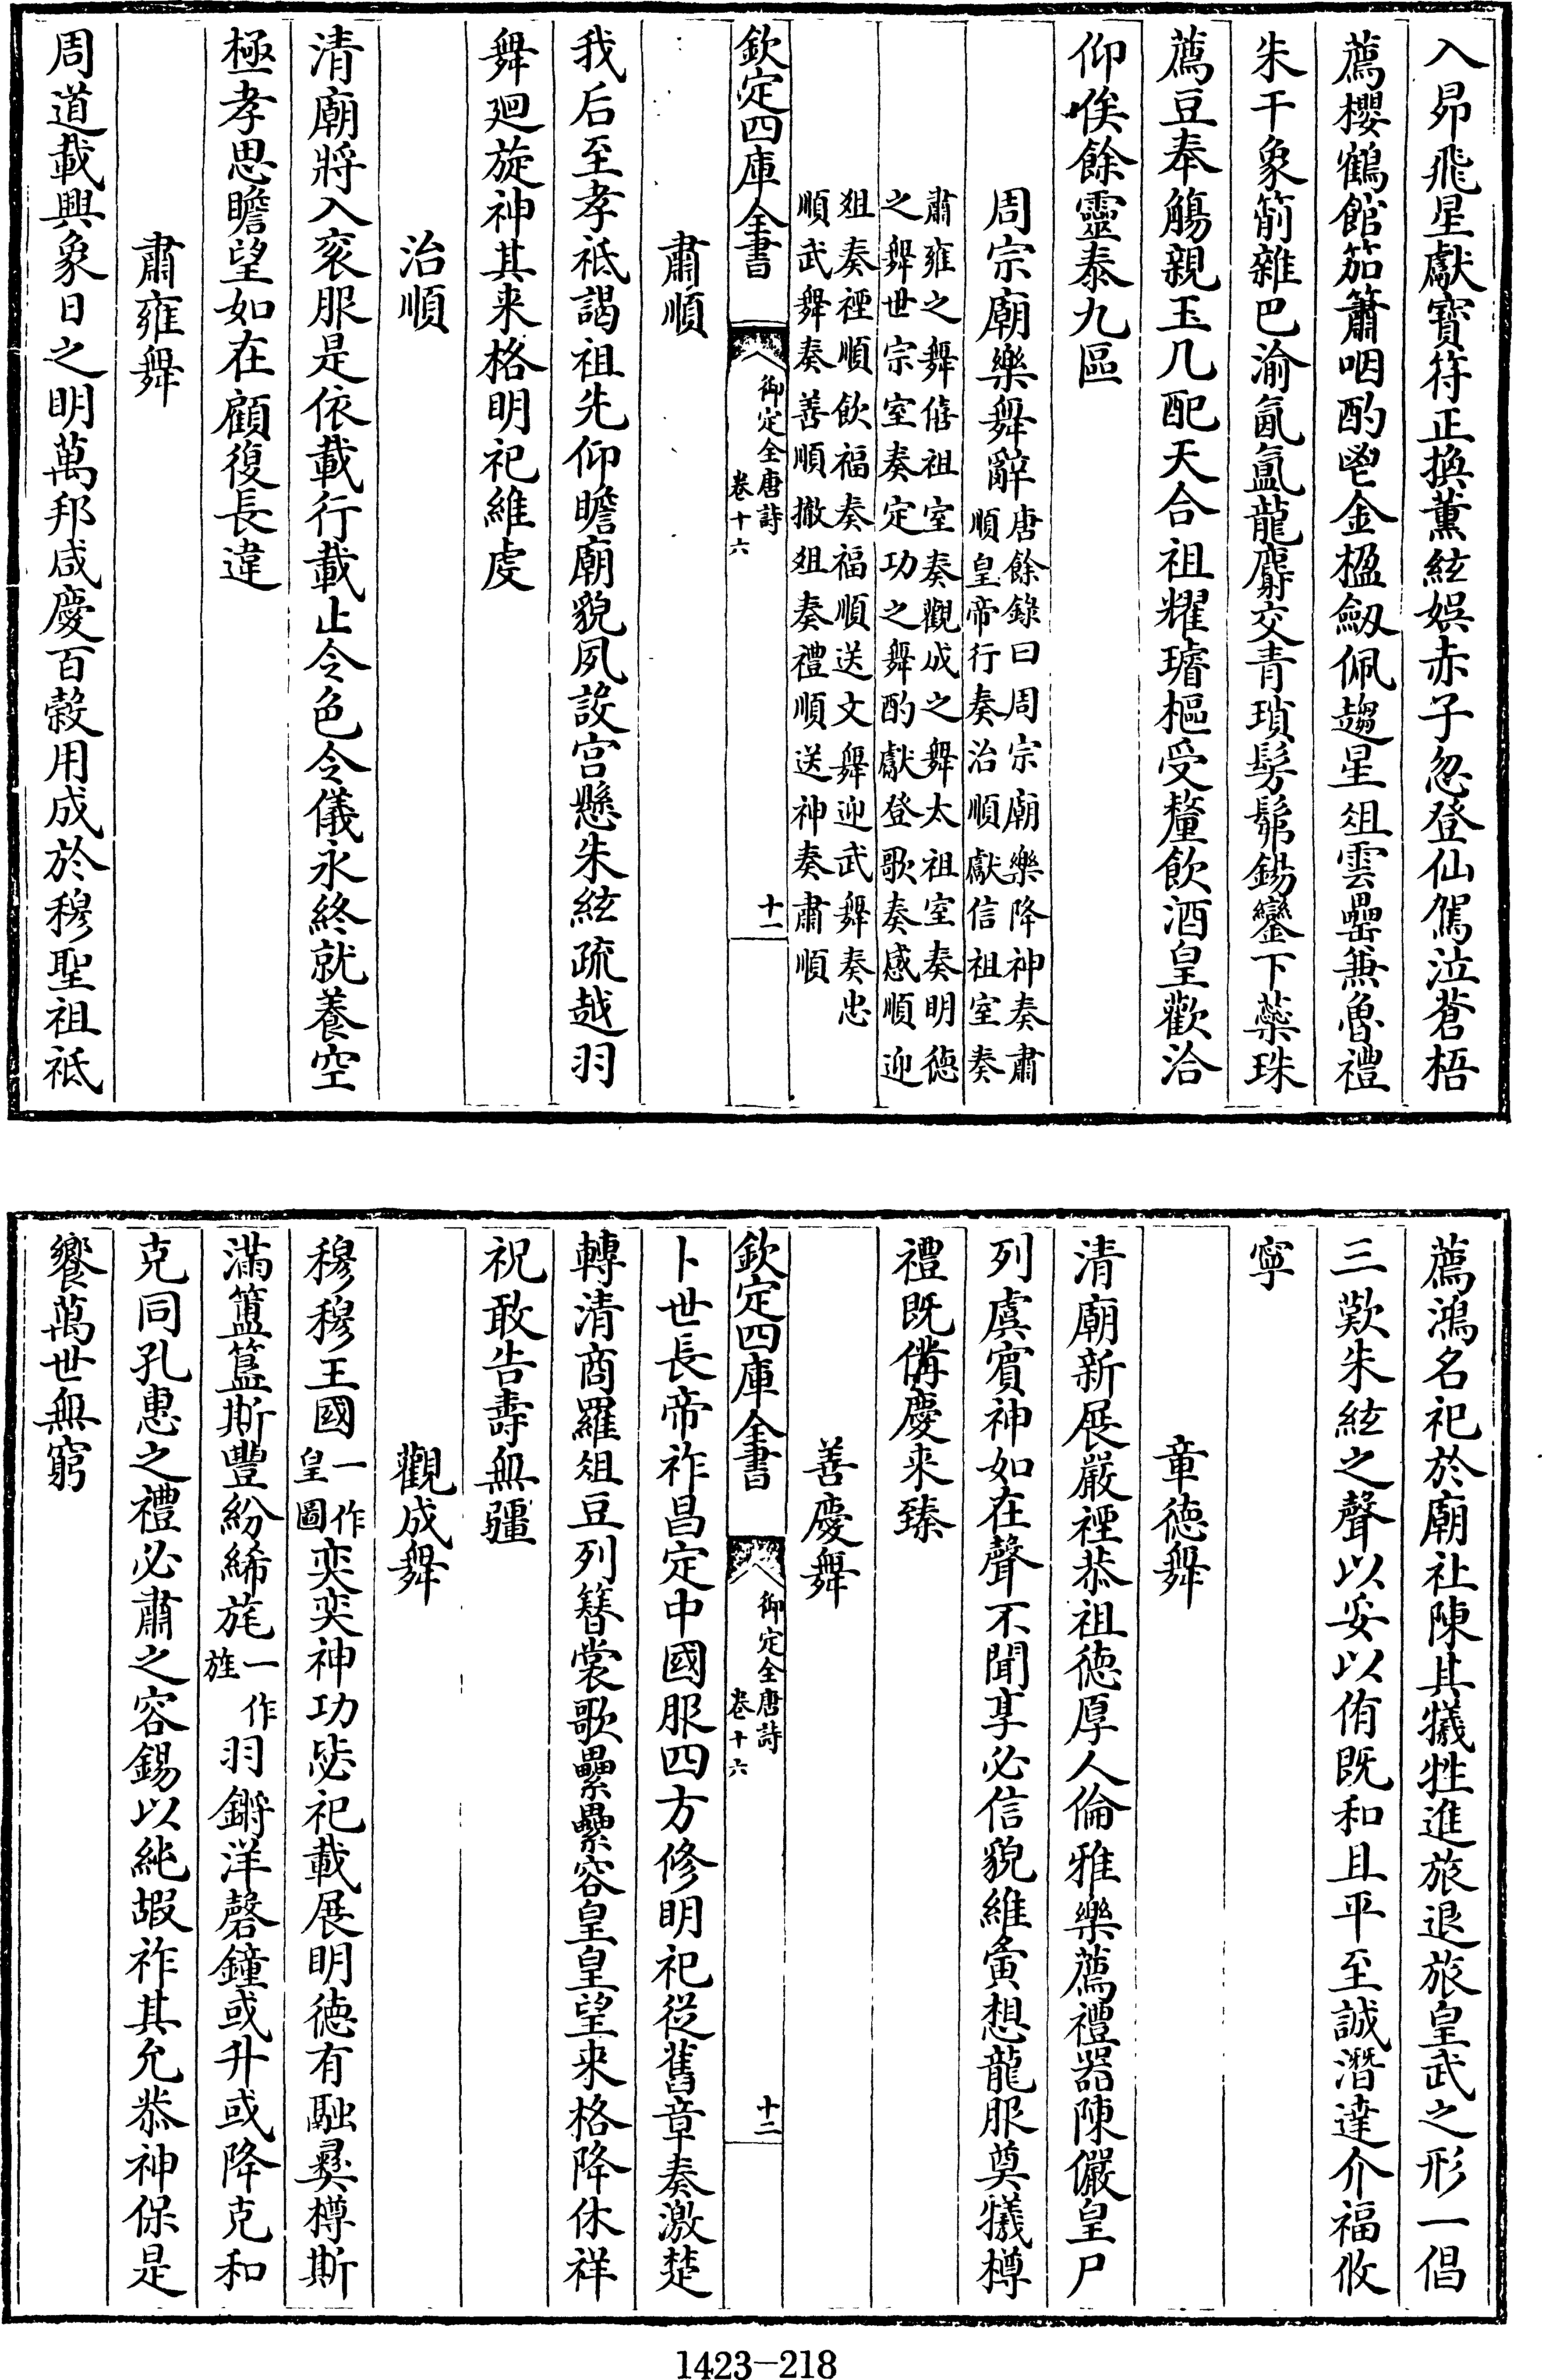 入昴飛星獻寶符正換薰絃娯赤子忽登仙駕泣蒼梧
薦櫻鶴館笳簫咽酌鬯金楹劒佩趨星俎雲罍兼魯禮
朱干象箾雜巴渝氤氲龍麝交青瑣髣髴鍚鑾下蘂珠
薦豆奉觴親玉几配天合祖耀璿樞受釐飲酒皇歡洽
仰俟餘靈泰九區
周宗廟樂舞辭
唐餘錄曰周宗廟樂降神奏肅
順皇帝行奏治順獻信祖室奏
肅雍之舞僖祖室奏觀成之舞太祖室奏明徳
之舞世宗室奏定功之舞酌獻登歌奏感順迎
俎奏禋順飲福奏福順送文舞迎武舞奏忠
順武舞奏善順撤俎奏禮順送神奏肅順
欽定四庫全書
御定全唐詩
卷十六
十一
肅順
我后至孝祗謁祖先仰瞻廟貌夙設宫懸朱絃疏越羽
舞廻旋神其来格明祀維虔
治順
清廟將入衮服是依載行載止令色令儀永終就養空
極孝思瞻望如在顧復長違
肅雍舞
周道載興象日之明萬邦咸慶百穀用成於穆聖祖祗
薦鴻名祀於廟社陳其犧牲進旅退旅皇武之形一倡
三歎朱絃之聲以妥以侑既和且平至誠潛達介福攸
寧
章徳舞
清廟新展嚴禋恭祖徳厚人倫雅樂薦禮器陳儼皇尸
列虞賓神如在聲不聞享必信貌維寅想龍服奠犧樽
禮既備慶来臻
善慶舞
欽定四庫全書
御定全唐詩
卷十六
十二
卜世長帝祚昌定中國服四方修明祀從舊章奏激楚
轉清商羅俎豆列簪裳歌纍纍容皇皇望来格降休祥
祝敢告壽無疆
觀成舞
穆穆王國一作皇圖奕奕神功毖祀載展明徳有融彞樽斯
滿簠簋斯豐紛綿旄一作旌羽鏘洋磬鐘或升或降克和
克同孔惠之禮必肅之容錫以純嘏祚其允恭神保是
饗萬世無窮
1423-218